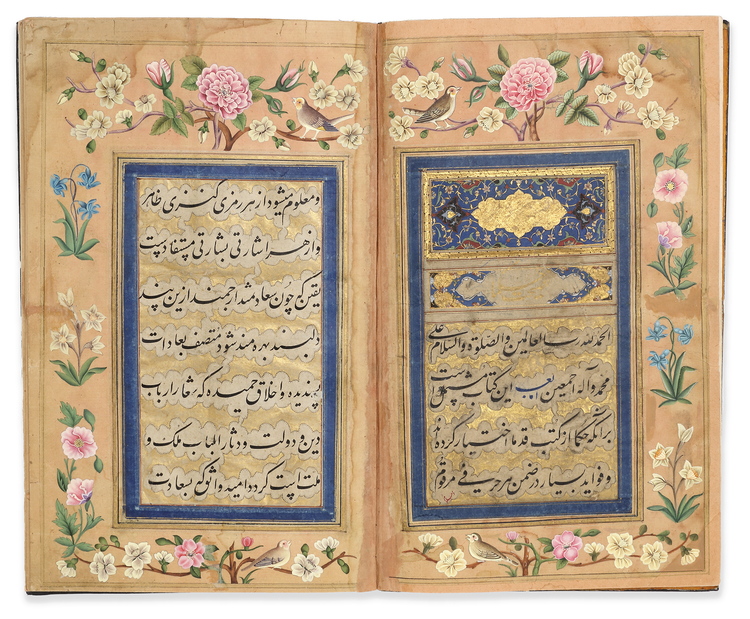 الحمد لله رب العالمین والصلوة والسلام علی
محمد وآله اجمعین بعد این کتاب مشتمل است
برآنکه حکما از کتب قدما اختیار کرده اند
و فواید بسیار در ضمن هر حرفی مرقوم
و معلوم میشود از هر رمزی کنزی ظاهر
و از هر اشارتی بشارتی مستفاد است
یقین که چون سعادتمند ارجمند ازین پند
دلبند بهره مند شود متصف بعادات
پسندیده و اخلاق حمیده که شعار ارباب
دین و دولت و دثار اصحاب ملک و
ملت است کردد امید واثق که بسعادت